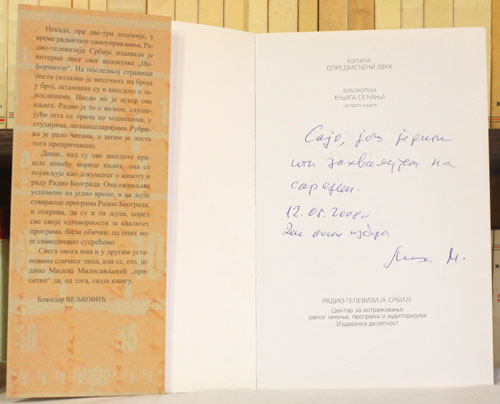 Некада, пре две-три деценије, у
време радничког самоуправљања, Ра-
дио-телевизија Србије издавала је
интерни лист свог колектива „Ин-
форматор“. На последњој страници
листа (излазио је месечно), из броја
у број, штампане су и анегдоте о за-
посленима. Писао их је аутор ове
књиге. Радио је то с вољом, слуша-
јући шта се прича по ходницима, у
студијима, по канцеларијама. Рубри-
ка је радо читана, а затим је доста
тога препричавано.
Данас, кад су ове анегдоте пре-
шле између корица књиге, оне се
појављују као документ о животу и
раду Радио Београда. Она оживљава
успомене на једно време, и на људе
ствараоце програма Радио Београда,
и открива, да су и ти људи, поред
све своје одговорности за квалитет
програма, били обични, од оних ко-
је свакодневно сусрећемо.
Свега овога има и у другим
установама сличног типа, али се, ето,
једино Милош Милосављевић „при-
сетио“ да, од тога, сазда књигу.
Божидар ВЕЉКОВИЋ
ЕДИЦИЈА
ОПРЕДМЕЋЕНИ ЗВУК
БИБЛИОТЕКА
КЊИГА СЕЋАЊА
ЧЕТВРТА КЊИГА
Сајо, још једном
ти захваљујем на
сарадњи.
12.05.2008.
РАДИО-ТЕЛЕВИЗИЈА СРБИЈЕ
Центар за истраживање
јавног мнења, програма и аудиторијума
Издавачка делатност